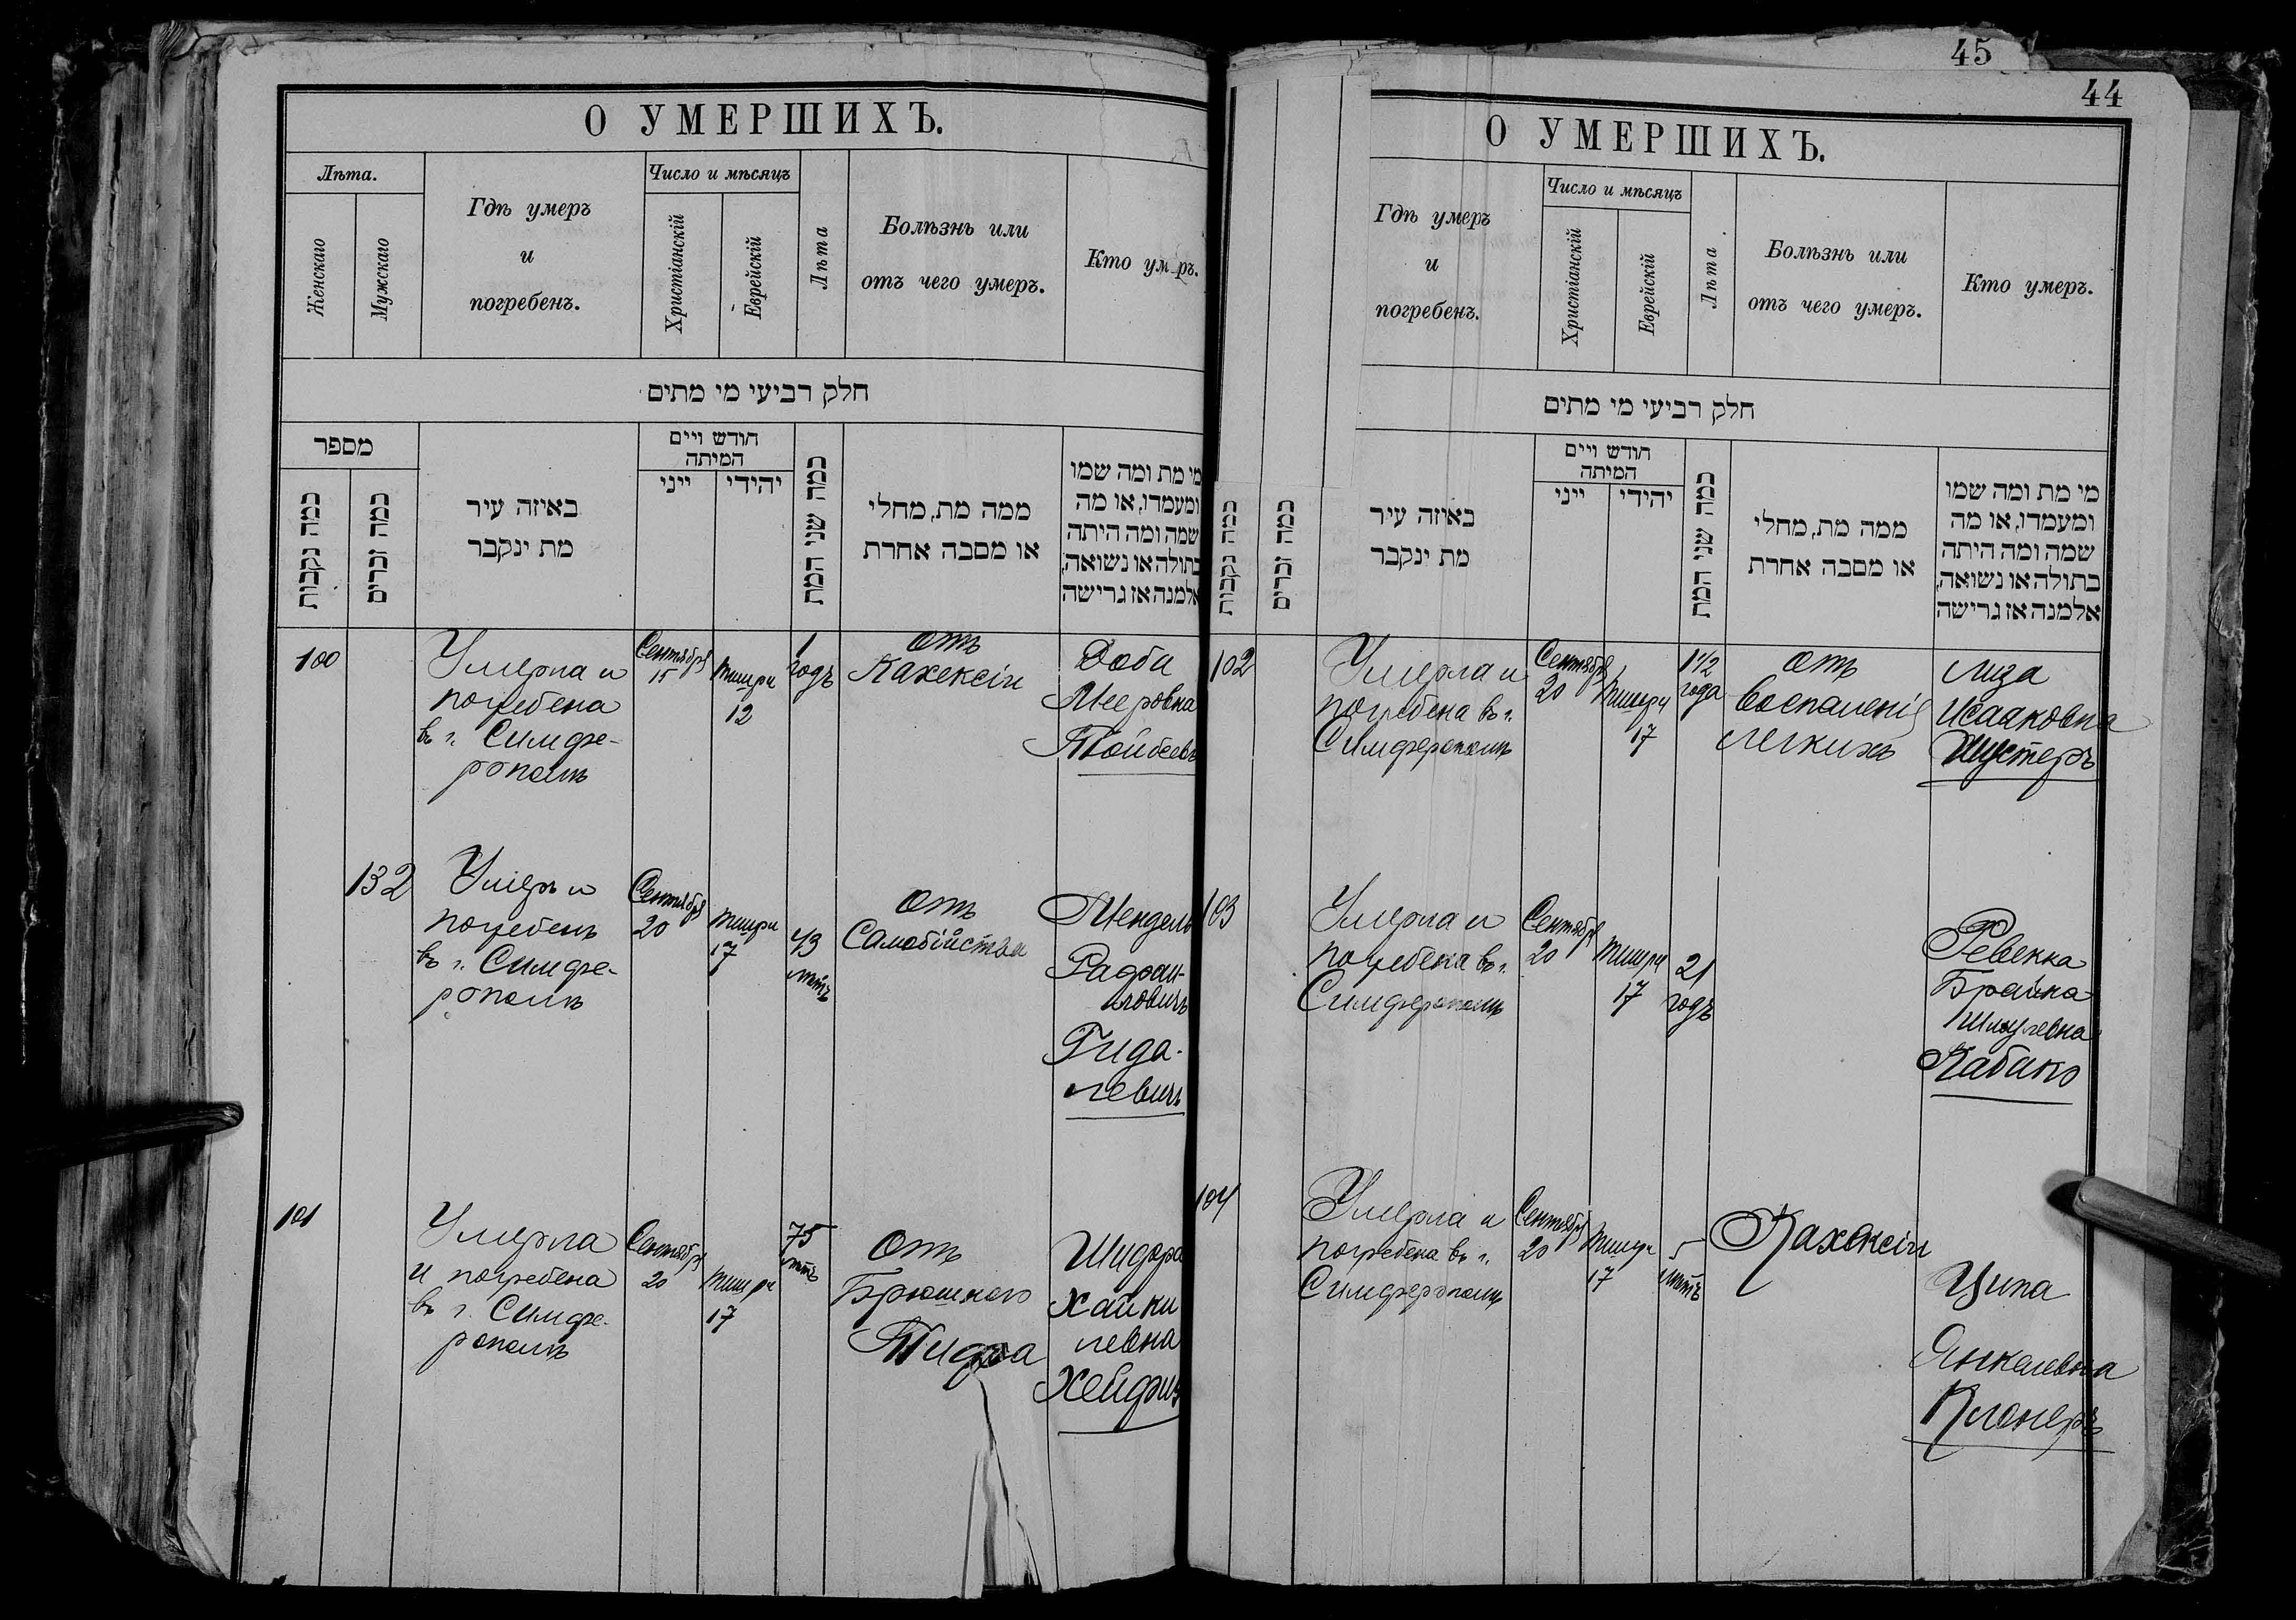 45
44
О УМЕРШИХЪ.
Лѣта.
Женскаго
Мужскаго
Гдѣ умеръ
и
погребенъ.
Число и мѣсяцъ
Христіанскій
Еврейскій
Лѣта
Болѣзнь или
отъ чего умеръ.
Кто умръ.
חלק רביעי מי מתים
מספר
כמה נקבות
כמה זכרים
באיזה עיר
מת ינקבר
חודש ויים
המיתה
ייני
יהידי
כמה שני המת
ממה מת, מחלי
או מסבה אחרת
מי מת ומה שמו
ומעמדו, או מה
שמה ומה היתה
בתולה או נשואה,
אלמנה אז גרישה
100
Умерла и
погребена
въ г. Симфе-
рополѣ
Сентября
15
Тишри
12
1
годъ
отъ
Кахексіи
Доба
Мееровна
132
Умеръ и
погребенъ
въ г. Симфе-
рополѣ
Сентября
20
Тишри
17
43
лѣтъ
отъ
Самобійства
Мендель
Рафаи-
ловичъ
Гида-
левичъ
101
Умерла
и погребена
въ г. Симфе-
рополѣ
Сентября
20
Тишри
17
75
лѣтъ
Отъ
Брюшного
Тифа
Шифра
Хайки
левна
Хейфиц
О УМЕРШИХЪ.
Гдѣ умеръ
и
погребенъ.
Число и мѣсяцъ
Христіанскій
Еврейскій
Лѣта
Болѣзнь или
отъ чего умеръ.
Кто умеръ.
חלק רביעי מי מתים
כמה נקבות
כמה זכרים
באיזה עיר
מת ינקבר
חודש ויים
המיתה
ייני
יהידי
כמה שני המת
ממה מת, מחלי
או מסבה אחרת
מי מת ומה שמו
ומעמדו, או מה
שמה ומה היתה
בתולה או נשואה,
אלמנה אז גרישה
102
Умерла и
погребена въ г.
Симферополѣ
Сентября
20
Тишри
17
1 1/2
года
отъ
Воспаленія
легкихъ
Лиза
Исааковна
Шустеръ
103
Умерла и
погребена въ г.
Симферополѣ
Сентября
20
Тишри
17
21
годъ
Ревекка
Брайна
Шмулевна
104
Умерла и
погребена въ г.
Симферополѣ
Сентября
20
Тишри
17
5
лѣтъ
Кахексіи
Ципа
Янкелевна